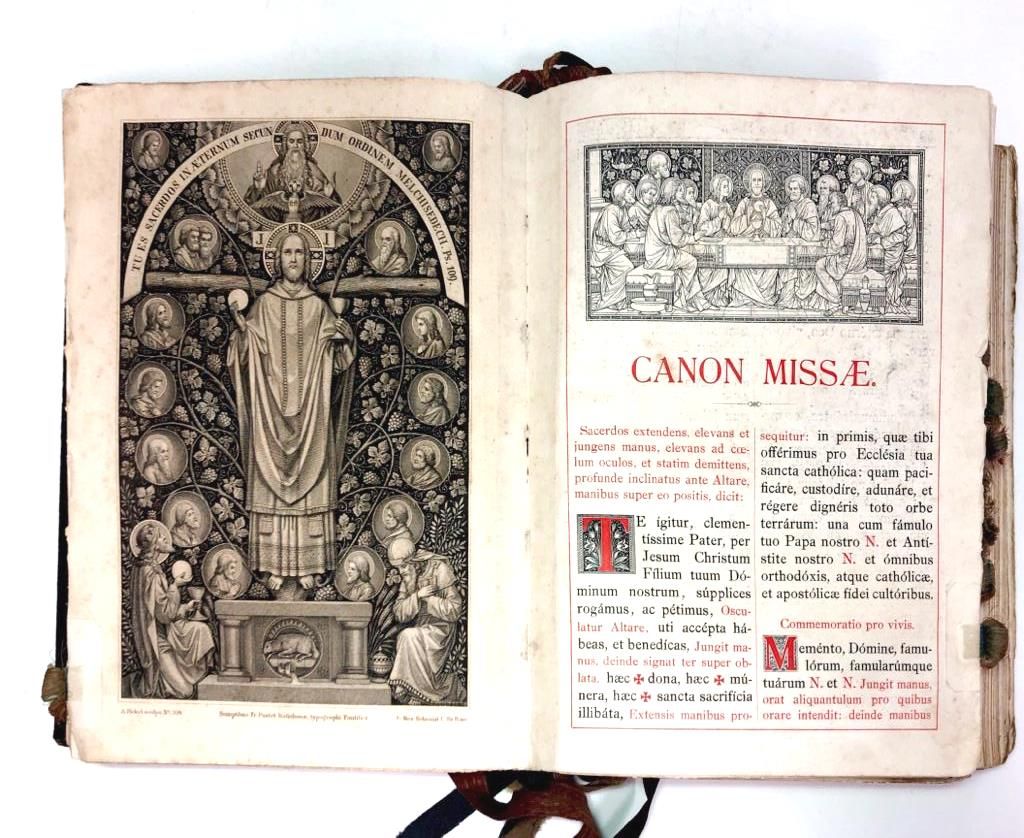 TU ES SACERDOS IN ÆTERNUM SECUNDUM ORDINEM MELCHISEDECH. Ps. 109.
J I
CANON MISSÆ.
Sacerdos extendens, elevans et
jungens manus, elevans ad cœ-
lum oculos, et statim demittens,
profunde inclinatus ante Altare,
manibus super eo positis, dicit:
TE ígitur, clemen-
tíssime Pater, per
Jesum Christum
Fílium tuum Dó-
minum nostrum, súpplices
rogámus, ac pétimus, Oscu-
latur Altare, uti accépta há-
beas, et benedícas, Jungit ma-
nus, deinde signat ter super ob-
lata, hæc ✠ dona, hæc ✠ mú-
nera, hæc ✠ sancta sacrifícia
illibáta, Extensis manibus pro-
sequitur: in primis, quæ tibi
offérimus pro Ecclésia tua
sancta cathólica: quam paci-
ficáre, custodíre, adunáre, et
régere dignéris toto orbe
terrárum: una cum fámulo
tuo Papa nostro N. et Antí-
stite nostro N. et ómnibus
orthodóxis, atque cathólicæ,
et apostólicæ fídei cultóribus.
Commemoratio pro vivis.
Meménto, Dómine, famu-
lórum, famularúmque
tuárum N. et N. Jungit manus,
orat aliquantulum pro quibus
orare intendit: deinde manibus